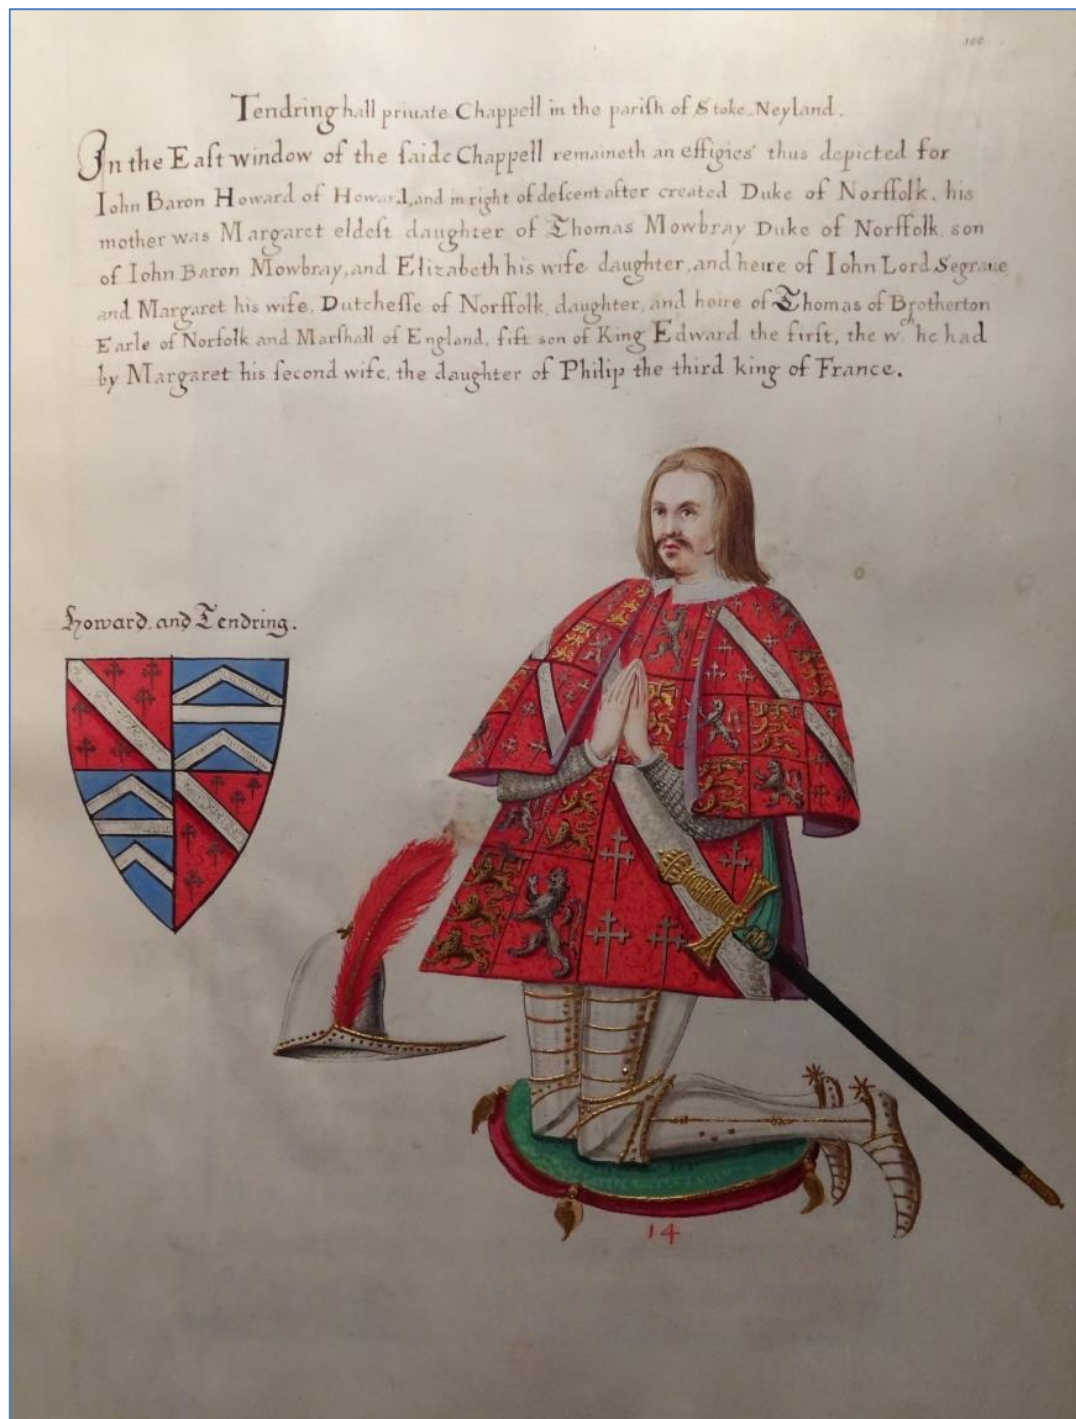 100
Tendring hall priuate Chappell in the pariſh of Stoke-Neyland.
In the Eaſt window of the ſaide Chappell remaineth an effigies thus depicted for
Iohn Baron Howard of Howard, and in right of deſcent after created Duke of Norffolk. his
mother was Margaret eldeſt daughter of Thomas Mowbray Duke of Norffolk, son
of Iohn Baron Mowbray, and Elizabeth his wife daughter, and heire of Iohn Lord Segraue,
and Margaret his wife, Dutcheſſe of Norffolk, daughter, and heire of Thomas of Brotherton
Earle of Norfolk and Marſhall of England, fift son of King Edward the firſt, the wch he had
by Margaret his ſecond wife, the daughter of Philip the third king of France.
Howard, and Tendring.
14